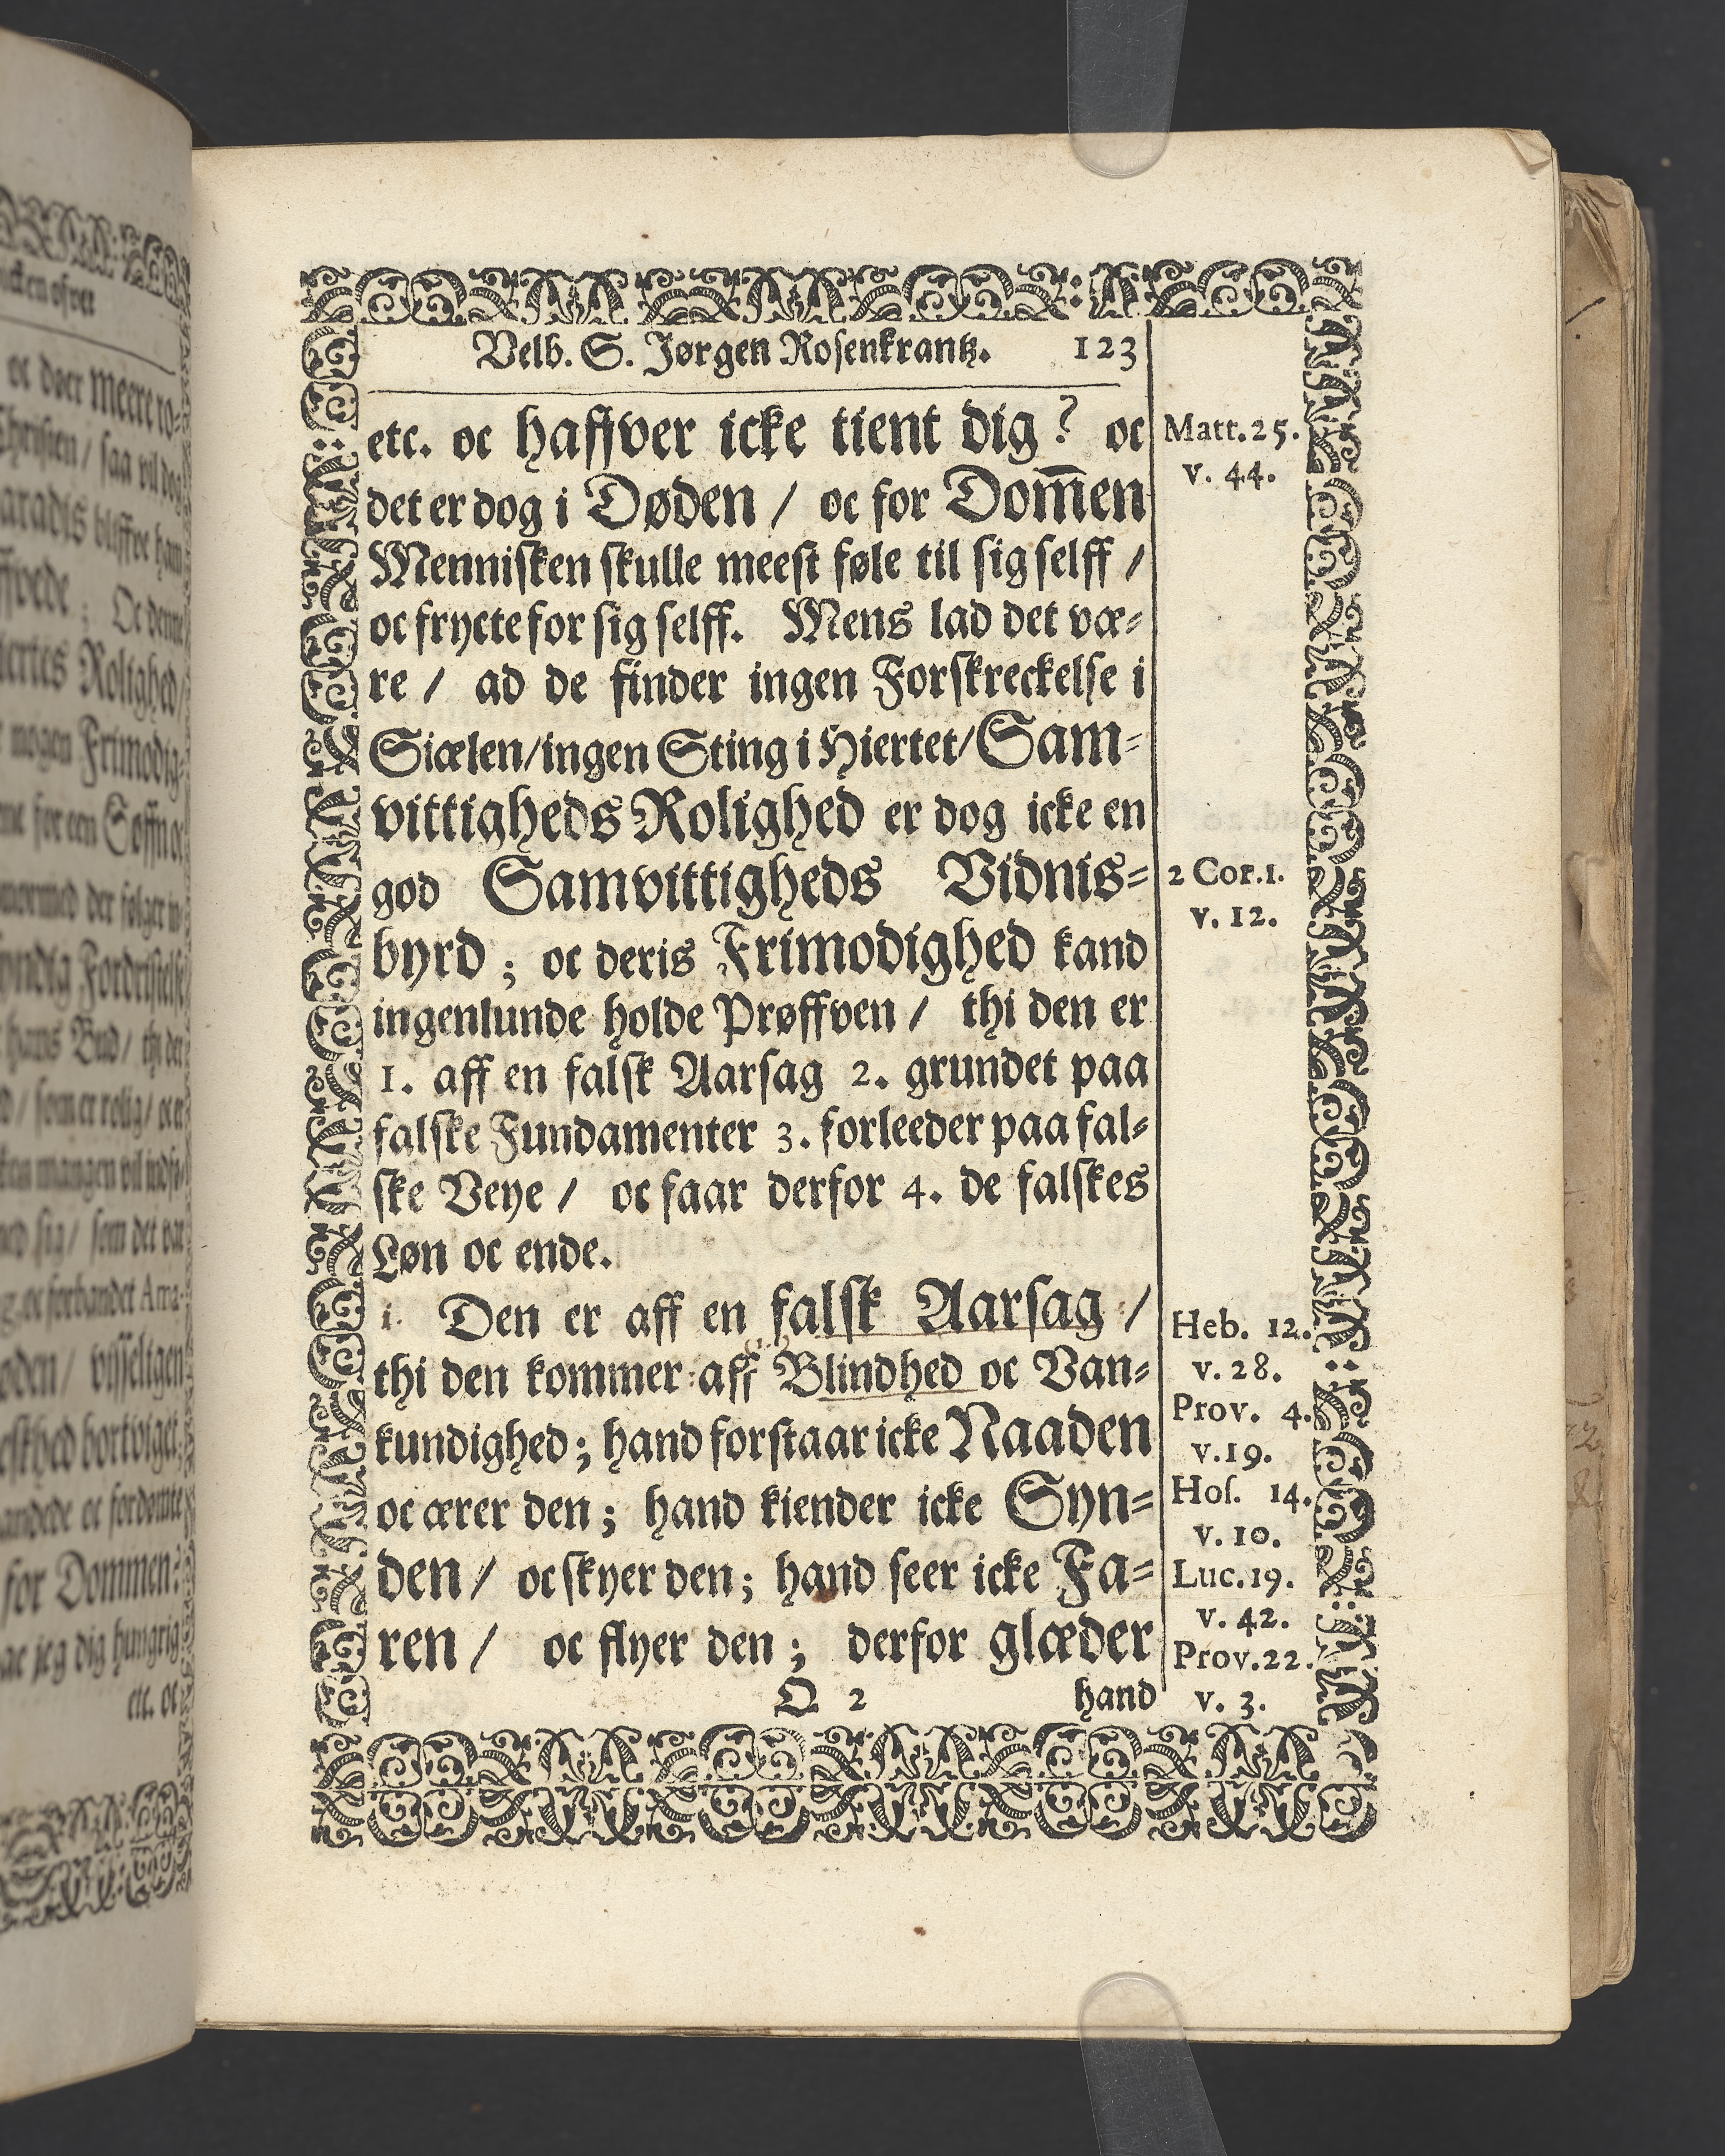 Velb. S. Jørgen Rosenkrantz. 123
etc. oc haffver icke tient dig? oc
det er dog i Døden / oc for Dom̄en
Mennisken skulle meest føle til sig selff /
oc frycte for sig selff. Mens lad det væ-
re / ad de finder ingen Forskreckelse i
Siælen / ingen Sting i Hiertet / Sam-
vittigheds Rolighed er dog icke en
god Samvittigheds Vidnis-
byrd ; oc deris Frimodighed kand
ingenlunde holde Prøffven / thi den er
1. aff en falsk Aarsag 2. grundet paa
falske Fundamenter 3. forleeder paa fal-
ske Veye / oc faar derfor 4. de falskes
Løn oc ende.
1. Den er aff en falsk Aarsag /
thi den kommer aff Blindhed oc Van-
kundighed ; hand forstaar icke Naaden
oc ærer den ; hand kiender icke Syn-
den / oc skyer den ; hand seer icke Fa-
ren / oc flyer den ; derfor glæder
O 2 hand
Matt. 25.
v. 44.
2 Cor. 1.
v. 12.
Heb. 12.
v. 28.
Prov. 4.
v. 19.
Hos. 14.
v. 10.
Luc. 19.
v. 42.
Prov. 22.
v. 3.